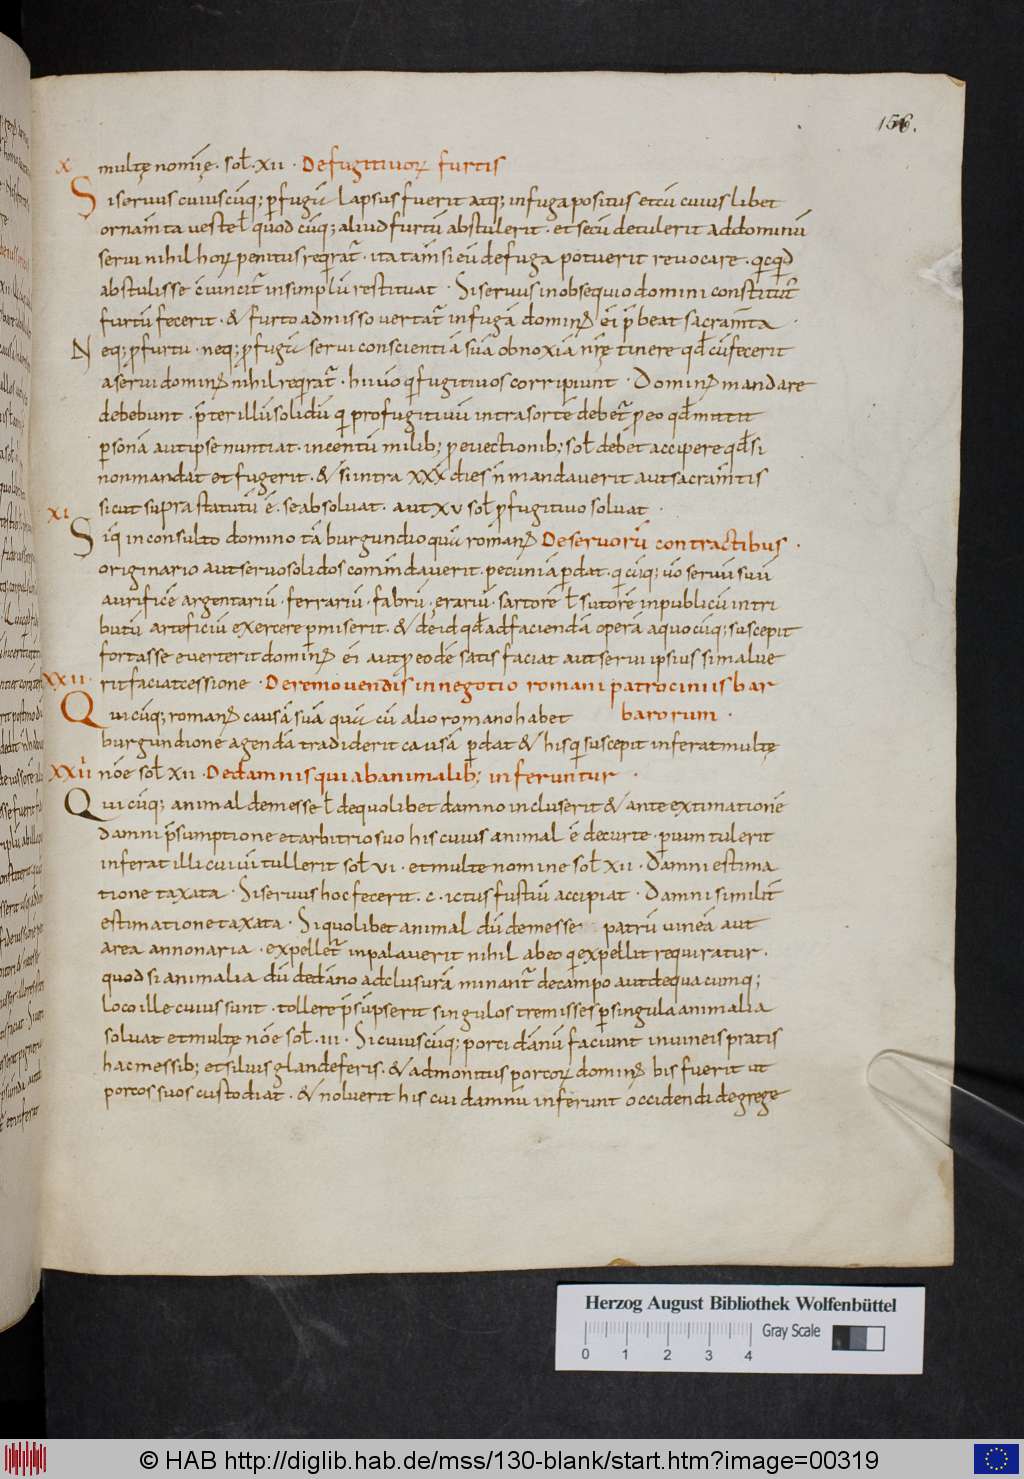 156.
X multę nomīe. sol̄. XII · De fugitiuoꝝ furtis
Si seruus cuiuscūq; p̱ fugā lapsus fuerit atq; in fuga positus et cū cuiuslibet
ornam̄ta uestel̄ quod cūq; aliud furtū abstulerit · et secū detulerit ad dominū
serui nihil hoꝝ penitus reqrat̄ · ita tam̄ si eū de fuga potuerit reuocare · qcqd
abstulisse cuincit̄ in simplū restituat · Si seruus in obsequio domini constitut᷒
furtū fecerit · & furto admisso uertat̄ in fugā domin᷒ ei p̄beat sacram̄ta ·
Neq; p̱ furtu · neq; p̱ fugā serui conscientiā suā obnoxiā n̄ re tinere qd̄ cū fecerit
a serui domin᷒ nihil reqrat̄ · hi uo q fugitiuos corripiunt · Domin᷒ mandare
debebunt · p̄ter illū solidū q pro fugitiuū intra sortē debet̄ p̱ eo qd̄ mittit
p̱sonā aut ipse nuntiat · in centū milib; p̱ euectionib; sol̄ debet accipere qd̄ si
non mandat et fugerit · & si intra XXX dies n̄ mandauerit aut sacram̄tis
sicut supra statutū ē · se absoluat · aut XV sol̄ p̱ fugitiuo soluat ·
XI Siq inconsulto domino tā burgundio quā roman᷒ De seruorū contractibus ·
originario aut seruo solidos comm̄dauerit · pecuniā p̱dat · qcūq; uō seruū suū
aurificē argentariū · ferrariū · fabrū · ęrariū · sartorē l̄ sutorē in publicū intri
butū arteficiū exercere p̱miserit · & de id qd̄ ad faciendā operā a quocūq; suscepit
fortasse euerterit domin᷒ ei aut p̱ eodē satis faciat aut serui ipsius si maluę
XXII · rit faciat cessione · De remouendis in negotio romani patrociniis bar
Quicūq; roman᷒ causā suā quā cū alio romano habet barorum ·
burgundione agendā tradiderit causā p̱dat & his q suscepit inferat multę
XXIII nōe sol̄ XII · De damnis qui ab animalib; inferuntur ·
Quicūq; animal de messe l̄ de quolibet damno incluserit & ante extimationē
damni p̄sumptione et arbitrio suo his cuius animal ē decurte · piuum tulerit
inferat illi cui iū tullerit sol̄ VI · et multe nomine sol̄ XII · Damni estima
tione taxata · Si seruus hoc fecerit · C · ictus fustiū accipiat · Damni similit̄
estimatione taxata · Si quolibet animal dū de messe patrū uineā aut
area annonaria · expellet̄ in palauerit nihil ab eo q expellit requiratur ·
quod si animalia dū de dāno ad clusurā minant̄ de campo aut de qua cumq;
loco ille cuius sunt · tollere p̄sūpserit singulos tremisses p̱ singula animalia
soluat et multę nōe sol̄ · III · Si cuiuscūq; porci dānū faciunt in uineis pratis
hac messib; et siluis glandeferis · & admonitus porcoꝝ domin᷒ bis fuerit ut
porcos suos custodiat · & noluerit his cui damnū inferunt occidendi de grege
Herzog August Bibliothek Wolfenbüttel
0 1 2 3 4 Gray Scale
© HAB http://diglib.hab.de/mss/130-blank/start.htm?image=00319